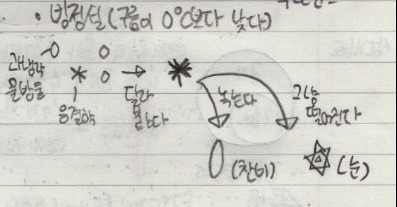 · 빙정설 (구름이 0℃보다 낮다)
과냉각
물방울
응결핵
달라
붙는다
녹는다
그냥
떨어진다
(찬비)
(눈)